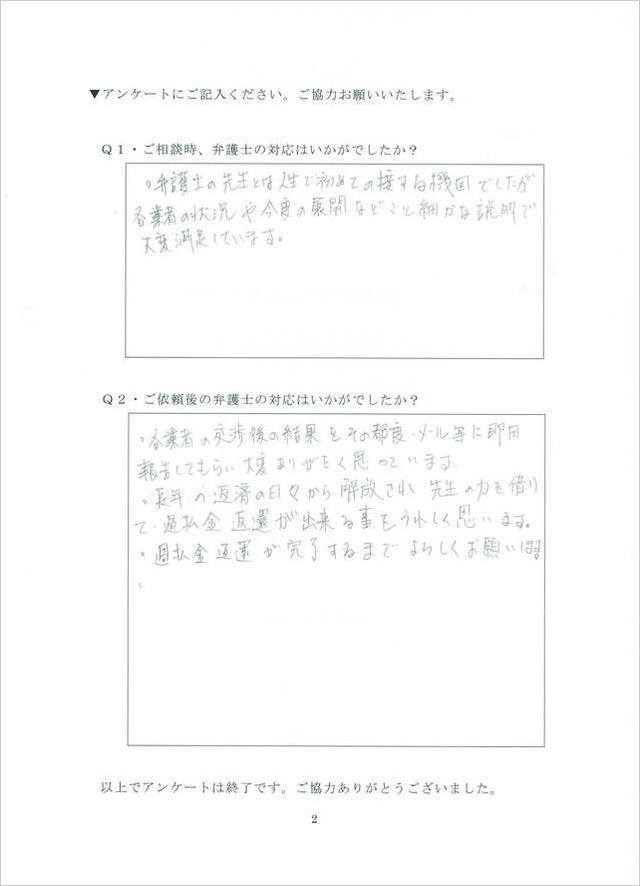 ▼アンケートにご記入ください。ご協力お願いいたします。
Q1・ご相談時、弁護士の対応はいかがでしたか?
・弁護士の先生とは人生で初めての接する機回でしたが
各業者の状況や今度の展開などこと細かな説明で
大変満足しています。
Q2・ご依頼後の弁護士の対応はいかがでしたか?
・各業者の交渉後の結果をその都度・メール等に即日
報告してもらい大変ありがたく思っています。
・長年の返済の日々から解放され先生の力を借り
て・過払金返還が出来る事をうれしく思います。
・過払金返還が完了するまでよろしくお願い
。
以上でアンケートは終了です。ご協力ありがとうございました。
2